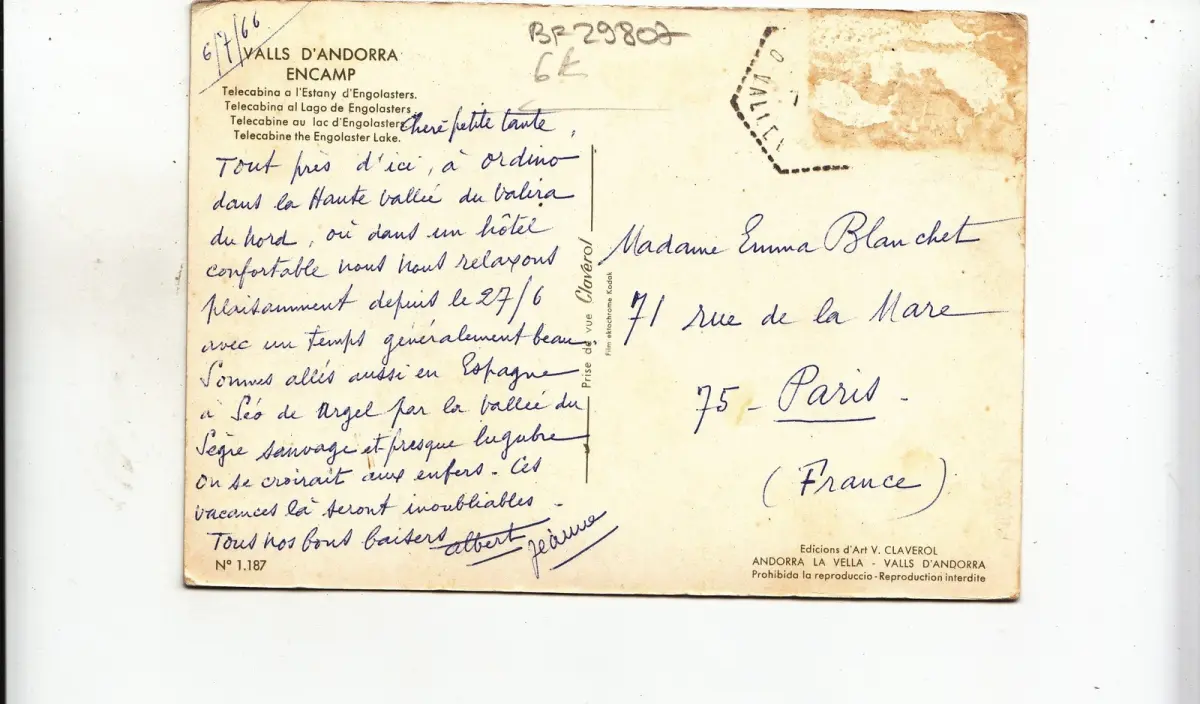 6/7/66
VALLS D'ANDORRA
ENCAMP
Telecabina a l'Estany d'Engolasters.
Telecabina al Lago de Engolasters
Telecabine au lac d'Engolasters
Telecabine the Engolaster Lake.
BF 29807
6k
Chère petite tante,
Tout près d'ici, à Ordino
dans la Haute vallée du Valira
du Nord, où dans un hôtel
confortable nous nous relaxons
plaisamment depuis le 27/6
avec un temps généralement beau.
Sommes allés aussi en Espagne
à Séo de Urgel par la vallée du
Sègre sauvage et presque lugubre
on se croirait aux enfers. Ces
vacances là seront inoubliables.
Tous nos bons baisers albert Jeanne
Nº 1.187
Prise de vue Claverol
Film ektachrome Kodak
VALLE
Madame Emma Blanchet
71 rue de la Mare
75 - Paris.
(France)
Edicions d'Art V. CLAVEROL
ANDORRA LA VELLA - VALLS D'ANDORRA
Prohibida la reproduccio - Reproduction interdite